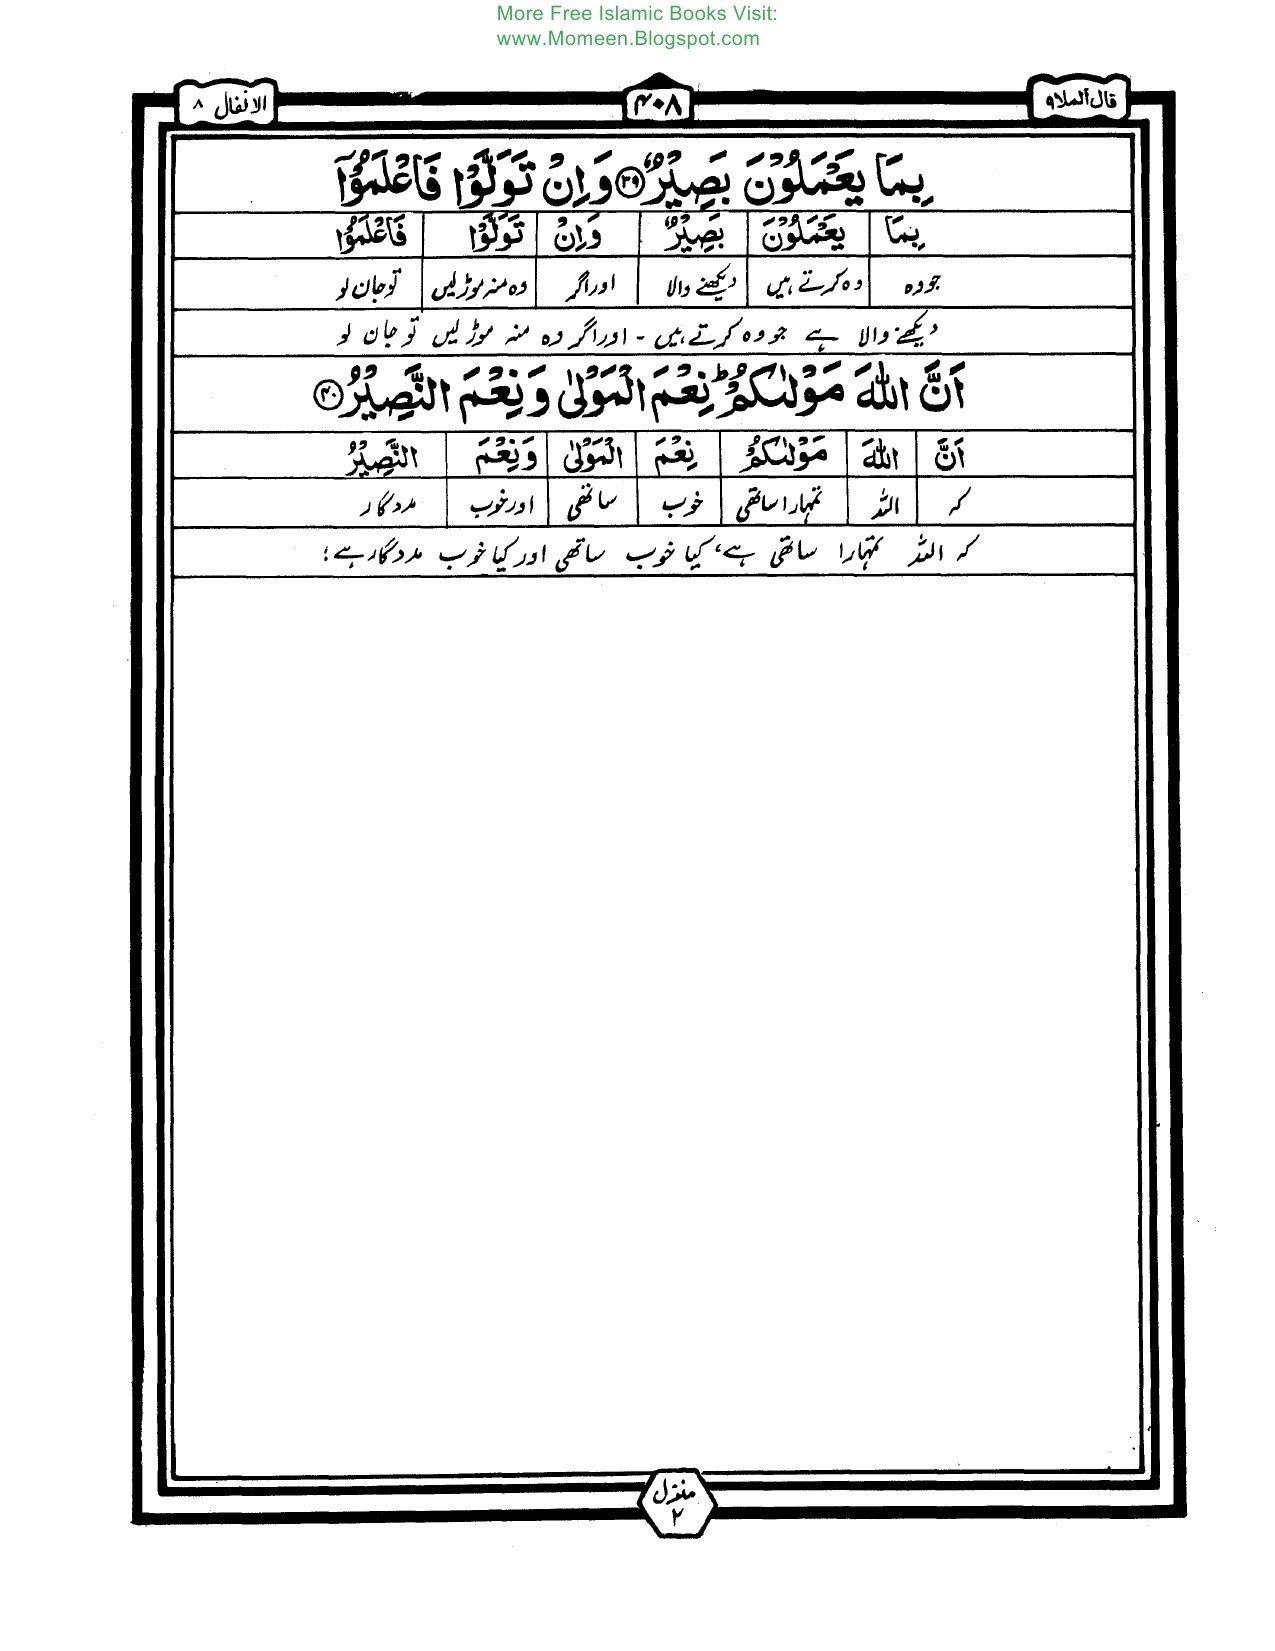 More Free Islamic Books Visit:
www.Momeen.Blogspot.com
قال ألملا ۹ ۴۰۸ الانفال ۸
بِمَا يَعْمَلُوْنَ بَصِيْرٌ ۳۹ وَاِنْ تَوَلَّوْا فَاعْلَمُوْٓا
بِمَا يَعْمَلُوْنَ بَصِيْرٌ وَاِنْ تَوَلَّوْا فَاعْلَمُوْٓا
جو وہ وہ کرتے ہیں دیکھنے والا اور اگر وہ منہ موڑ لیں تو جان لو
دیکھنے والا ہے جو وہ کرتے ہیں - اور اگر وہ منہ موڑ لیں تو جان لو
اَنَّ اللّٰهَ مَوْلٰىكُمْ ؕ نِعْمَ الْمَوْلٰى وَنِعْمَ النَّصِيْرُ ۴۰
اَنَّ اللّٰهَ مَوْلٰىكُمْ نِعْمَ الْمَوْلٰى وَنِعْمَ النَّصِيْرُ
کہ اللہ تمہارا ساتھی خوب ساتھی اور خوب مددگار
کہ اللہ تمہارا ساتھی ہے، کیا خوب ساتھی اور کیا خوب مددگار ہے؛
منزل
۲